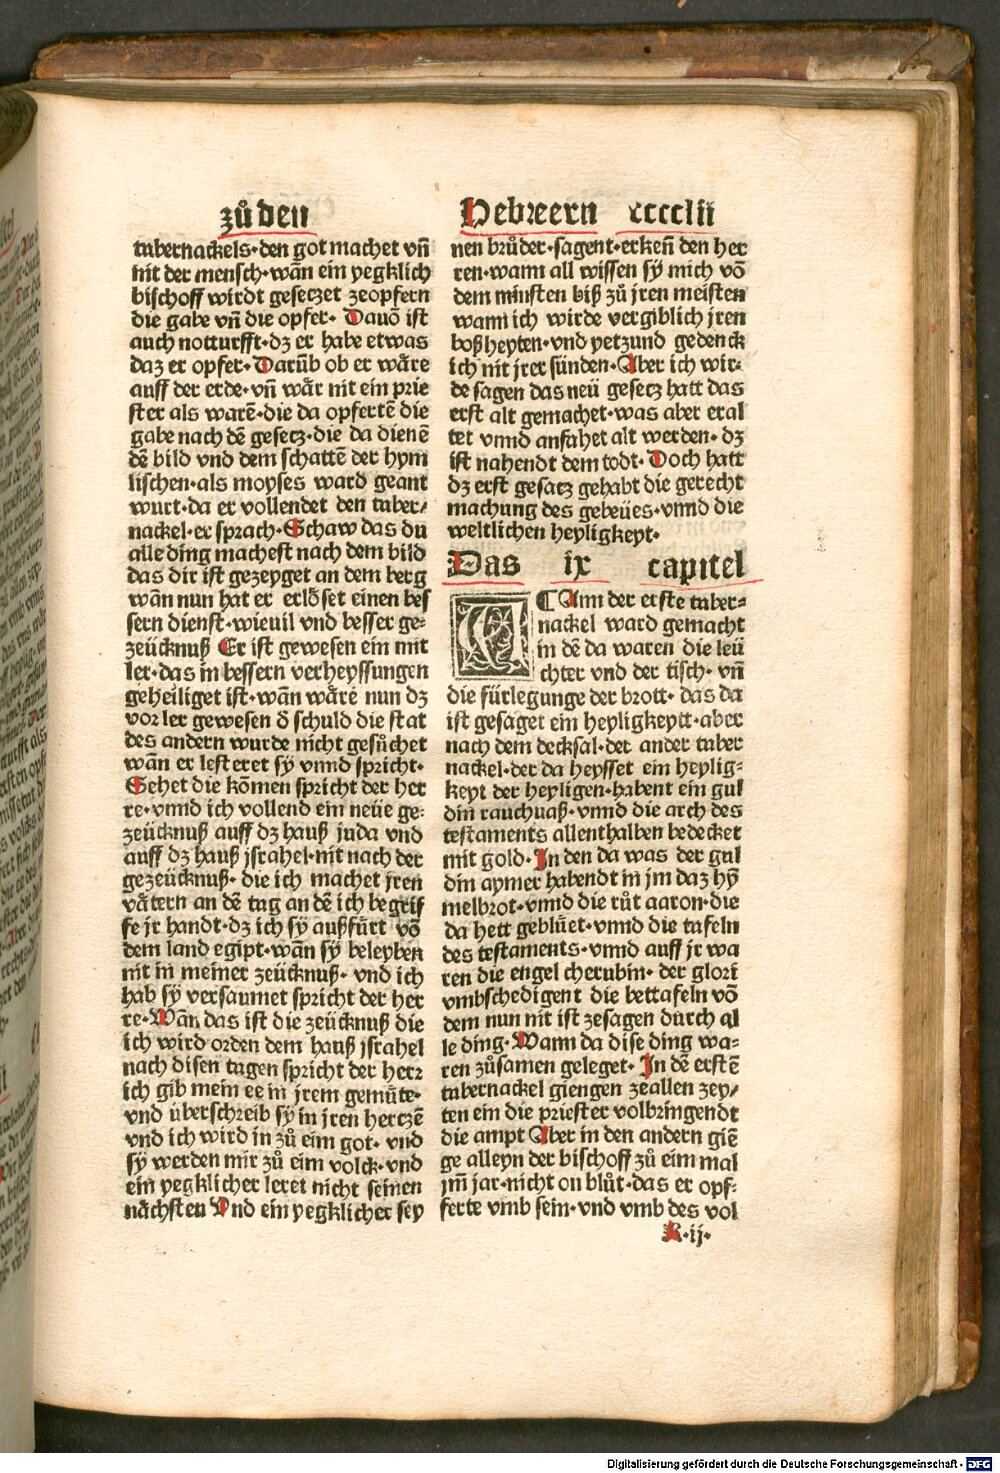 zů den
tabernackels·den got machet vñ
nit der mensch·wãn ein yegklich
bischoff wirdt gesetzet zeopfern
die gabe vñ die opfer· Dauõ ist
auch notturfft·dz er habe etwas
daz er opfer·Darũb ob er wäre
auff der erde·vñ wär nit ein prie
ster als warẽ·die da opfertẽ die
gabe nach dẽ gesetz·die da dienẽ
dẽ bild vnd dem schattẽ der hym
lischen·als moyses ward geant
wurt·da er vollendet den taber/
nackel·er sprach·Schaw das du
alle ding machest nach dem bild
das dir ist gezeyget an dem berg
wãn nun hat er erlőset einen bes
sern dienst·wieuil vnd besser ge⸗
zeücknuß Er ist gewesen ein mit
ler·das in bessern verheyssungen
geheiliget ist·wãn wäre nun dz
vor ler gewesen ð schuld die stat
des andern wurde nicht gesůchet
wãn er lesteret sy vnnd spricht·
Sehet die kõmen spricht der her
re·vnnd ich vollend ein neüe ge⸗
zeücknuß auff dz hauß juda vnd
auff dz hauß jsrahel·nit nach der
gezeücknuß· die ich machet jren
vätern an dẽ tag an dẽ ich begrif
fe jr handt·dz ich sÿ außfürt võ
dem land egipt·wãn sÿ beleyben
nit in meiner zeücknuß· vnd ich
hab sÿ versaumet spricht der her
re·Wãn das ist die zeücknuß die
ich wird orden dem hauß jsrahel
nach disen tagen spricht der herr
ich gib mein ee in jrem gemüte·
vnd überschreib sy in jren hertzẽ
vnd ich wird in zů eim got· vnd
sÿ werden mir zů eim volck·vnd
ein yegklicher leret nicht seinen
nächsten Vnd ein yegklicher sey
Hebreern ccccliı
nen brůder·sagent·erkeñ den her
ren·wann all wissen sÿ mich võ
dem minsten biß zů jren meisten
wann ich wirde vergiblich jren
boßheyten·vnd yetzund gedenck
ich nit jrer sünden·Aber ich wir⸗
de sagen das neü gesetz hatt das
erst alt gemachet·was aber eral
tet vnnd anfahet alt werden· dz
ist nahendt dem todt· Doch hatt
dz erst gesatz gehabt die gerecht
machung des gebeües·vnnd die
weltlichen heyligkeyt·
Das ix capitel
¶ Ann der erste taber⸗
nackel ward gemacht
in dẽ da waren die leü
chter vnd der tisch· vñ
die fürlegunge der brott· das da
ist gesaget ein heyligkeytt·aber
nach dem decksal·der ander taber
nackel·der da heysset ein heylig⸗
keyt der heyligen·habent ein gul
din rauchuaß·vnnd die arch des
testaments allenthalben bedecket
mit gold·In den da was der gul
din aymer habendt in jm daz hÿ
melbrot·vnnd die růt aaron·die
da hett geblüet·vnnd die tafeln
des testaments·vnnd auff jr wa
ren die engel cherubin· der glori
vmbschedigent die bettafeln võ
dem nun nit ist zesagen durch al
le ding·Wann da dise ding wa⸗
ren zůsamen geleget· In dẽ erstẽ
tabernackel giengen zeallen zey/
ten ein die priester volbringendt
die ampt Aber in den andern giẽ
ge alleyn der bischoff zů eim mal
jm̃ jar·nicht on blůt·das er opf⸗
ferte vmb sein·vnd vmb des vol
R·ij·
Digitalisierung gefördert durch die Deutsche Forschungsgemeinschaft - DFG